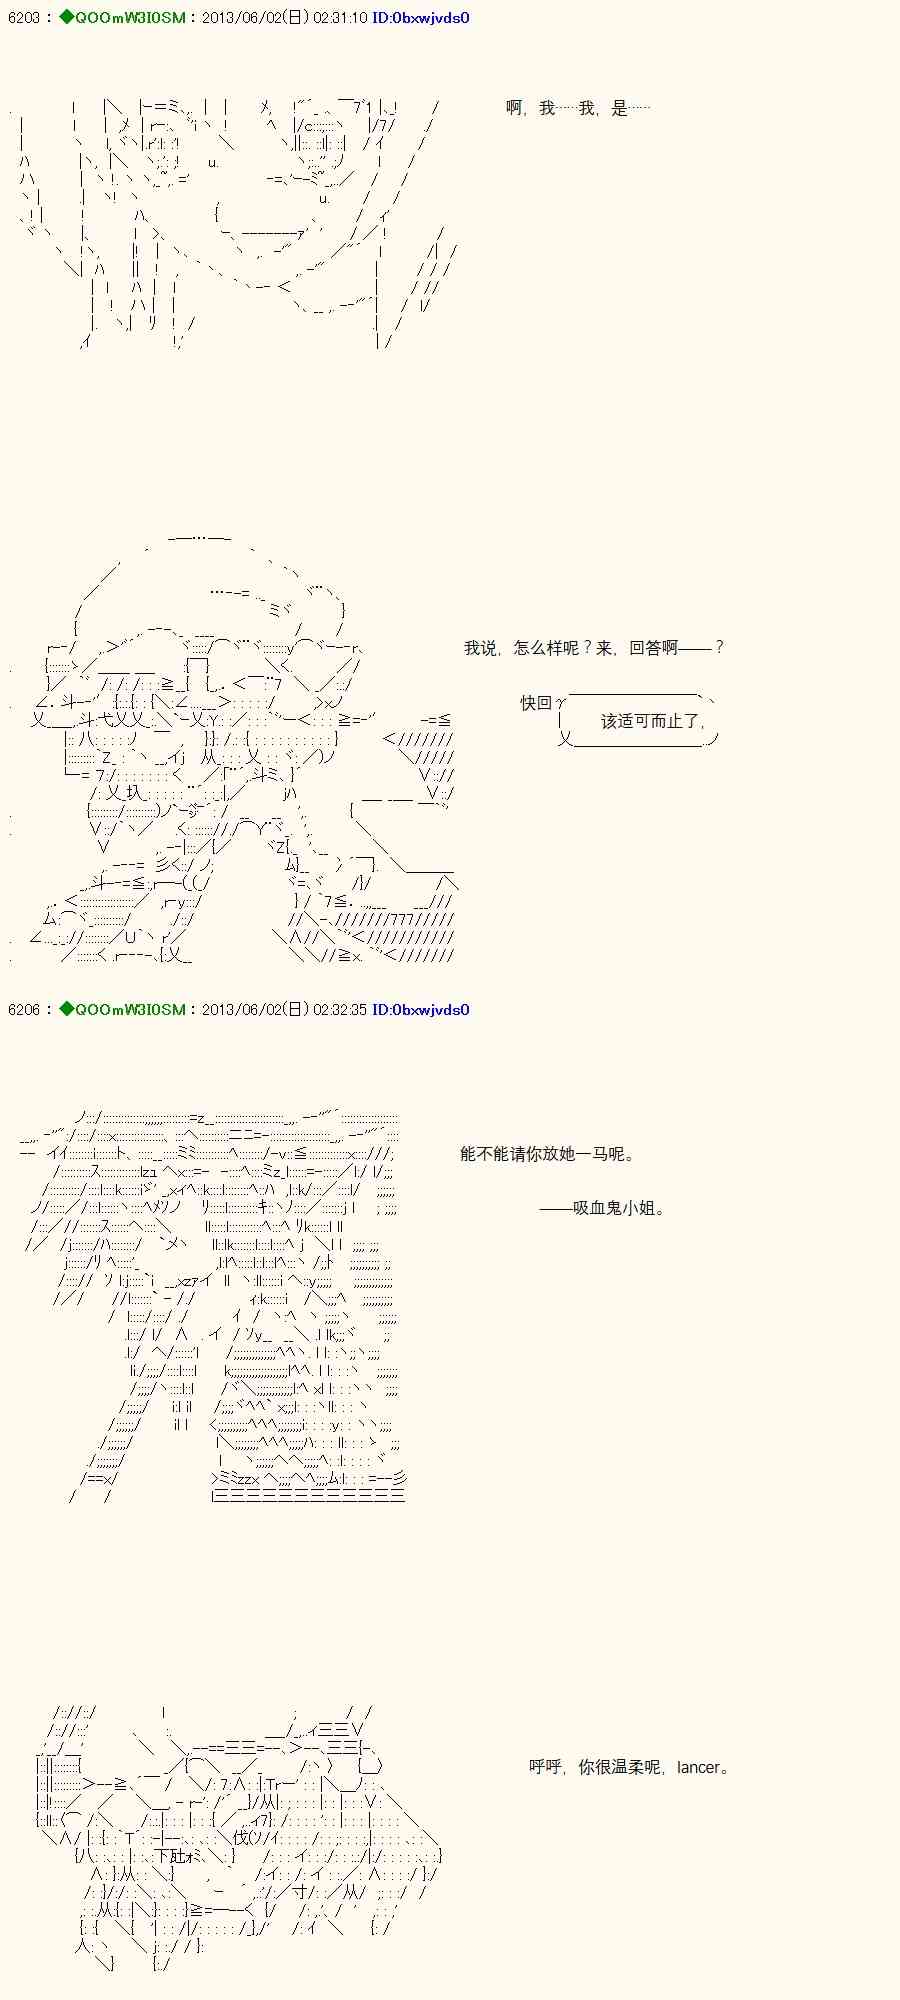 6203 : ◆QOOmW3I0SM : 2013/06/02(日) 02:31:10 ID:0bxwjvds0
啊，我……我，是……
我说，怎么样呢？来，回答啊——？
快回
该适可而止了，
6206 : ◆QOOmW3I0SM : 2013/06/02(日) 02:32:35 ID:0bxwjvds0
能不能请你放她一马呢。
——吸血鬼小姐。
呼呼，你很温柔呢，lancer。